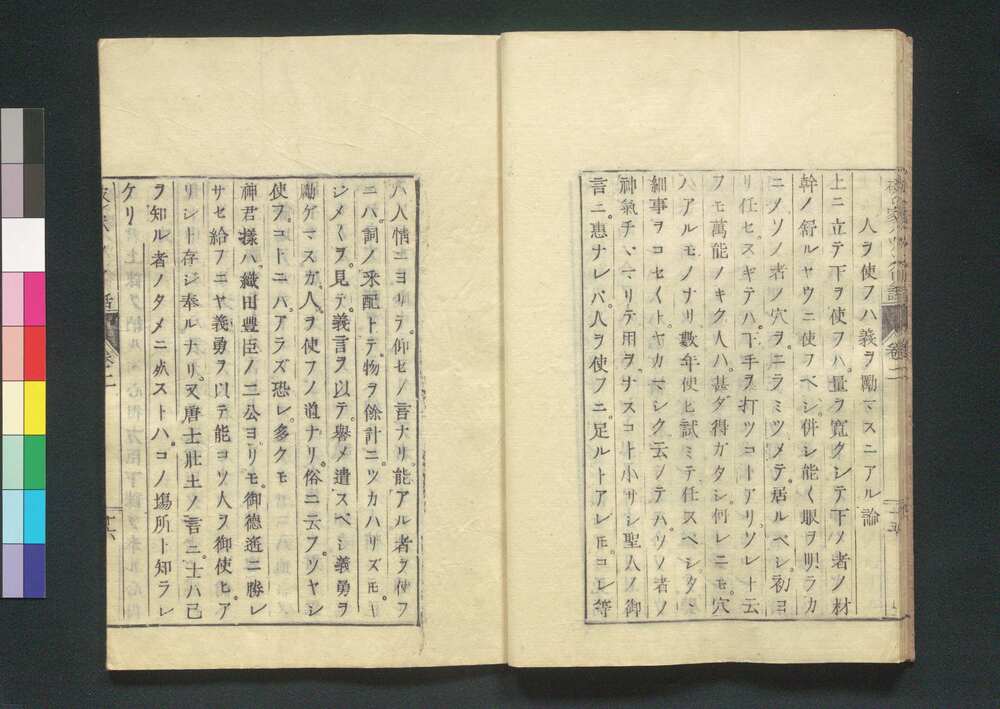 人ヲ使フハ義ヲ勵マスニアル論
上ニ立テ下ヲ使フハ。量ヲ寛クシテ下ノ者ノ材
幹ノ舒ルヤウニ使フベシ。併シ能ク眼ヲ明ラカ
ニメソノ者ノ穴ヲ。ニラミツメテ。居ルベシ。初ヨ
リ任セスギテハ。下手ヲ打ツコトアリ。ツレ十云
フモ萬能ノキク人ハ。甚ダ得ガタシ。何レニモ。穴
ハアルモノナリ。數年使ヒ試ミテ任スベシ。タヾ
細事ヲコセ〱ト。ヤカマシク云ノテハ。ソノ者ノ
神氣チヾマリテ。用ヲナスコト小ナシ。聖人ノ御
言ニ。惠ナレバ。人ヲ使フニ。足ルトアレ𪜈。コレ等
ハ人情ニヨリテ。仰セノ言ナリ。能アル者ヲ使フ
ニハ。詞ノ采配トテ。物ヲ餘計ニ。ツカハサズモ。キ
シメ〱ヲ。見テ。義言ヲ以テ。譽メ遣スベシ。義勇ヲ
勵ゲマスガ。人ヲ使フノ道ナリ。俗ニ云フ。ツヤシ
使フコトニハ。アラズ。恐レ多クモ
神君樣ハ。織田豊臣ノ二公ヨリモ。御德遙ニ勝レ
サセ給フニヤ。義勇ヲ以テ。能コソ人ヲ御使ヒア
リシト存ジ奉ルナリ。又唐士壯士ノ言ニ。士ハ己
ヲ知ル者ノタメニ死ストハ。コノ塲所ト知ラレ
ケリ